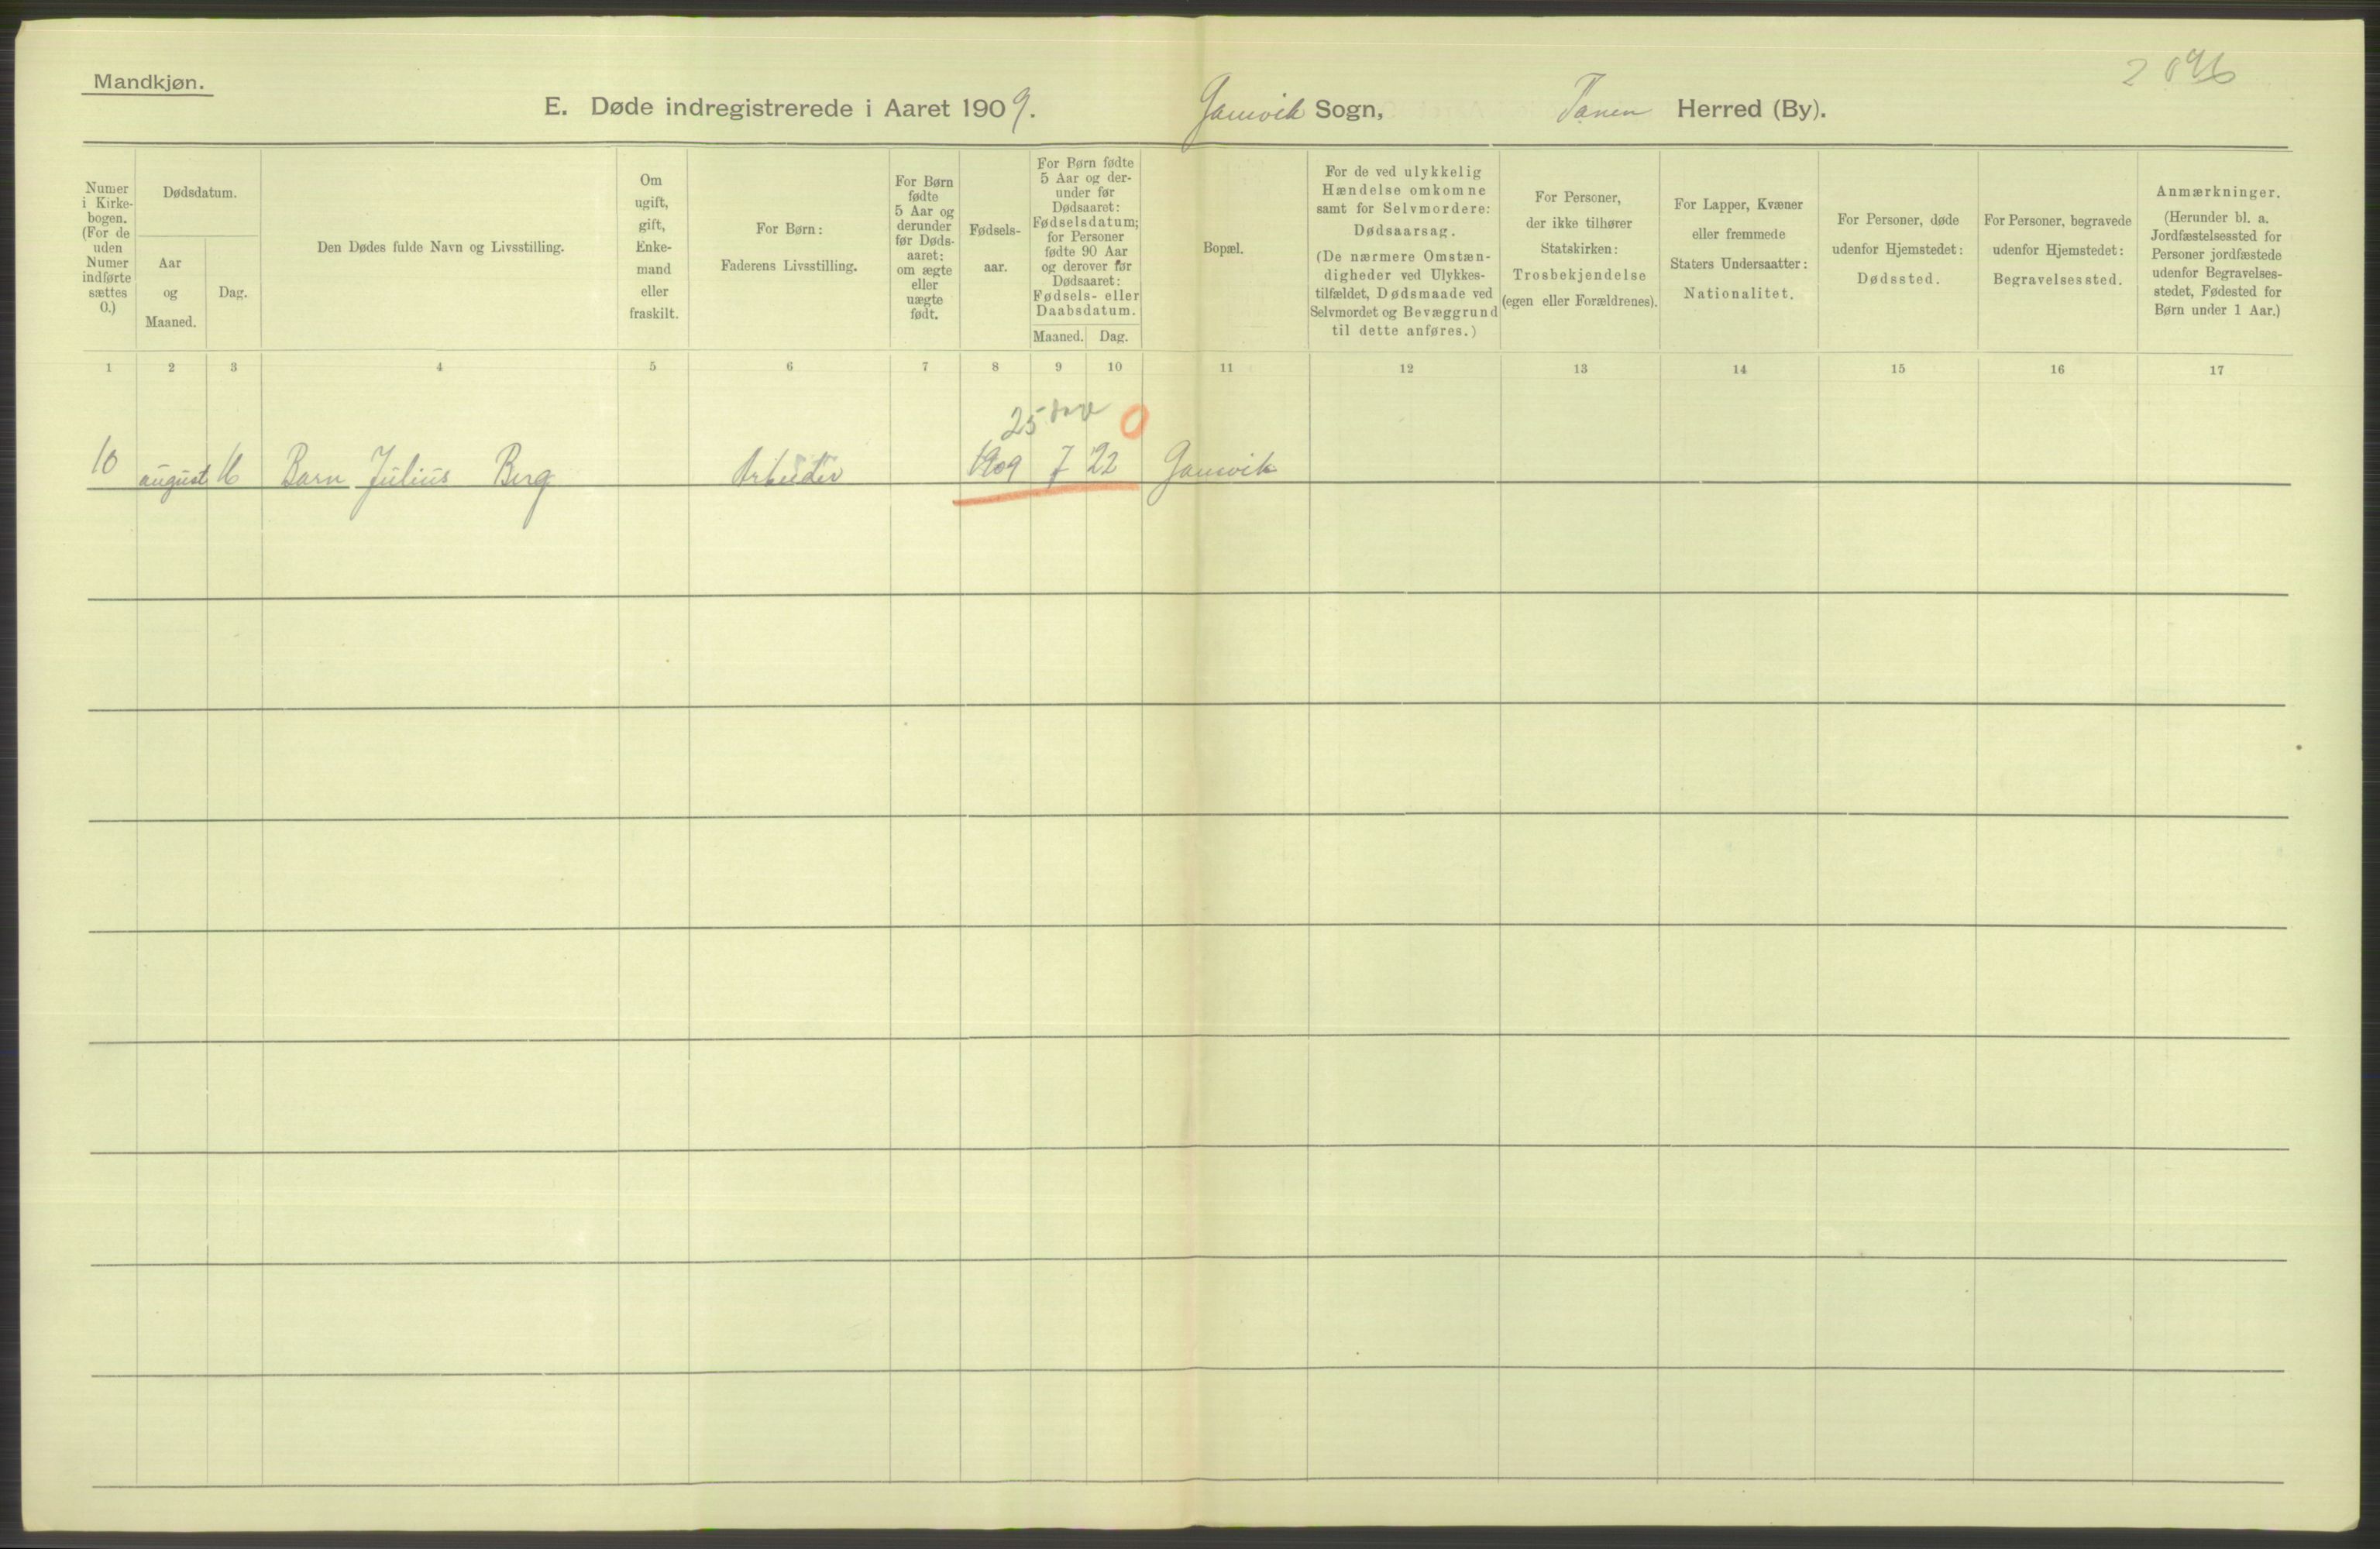 Mandkjøn.
E. Døde indregistrerede i Aaret 1909. Gamvik Sogn, Tanen Herred (By).
Numer
i Kirke-
bogen.
(For de
uden
Numer
indførte
sættes
0.)
Dødsdatum.
Aar
og
Maaned.
Dag.
Den Dødes fulde Navn og Livsstilling.
Om
ugift,
gift,
Enke-
mand
eller
fraskilt.
For Børn:
Faderens Livsstilling.
For Børn
fødte
5 Aar og
derunder
før Døds-
aaret:
om ægte
eller
uægte
født.
Fødsels-
aar.
For Børn fødte
5 Aar og der-
under før
Dødsaaret:
Fødselsdatum;
for Personer
fødte 90 Aar
og derover før
Dødsaaret:
Fødsels- eller
Daabsdatum.
Maaned. Dag.
Bopæl.
For de ved ulykkelig
Hændelse omkomne
samt for Selvmordere:
Dødsaarsag.
(De nærmere Omstæn-
digheder ved Ulykkes-
tilfældet, Dødsmaade ved
Selvmordet og Bevæggrund
til dette anføres.)
For Personer,
der ikke tilhører
Statskirken:
Trosbekjendelse
(egen eller Forældrenes).
For Lapper, Kvæner
eller fremmede
Staters Undersaatter:
Nationalitet.
For Personer, døde
udenfor Hjemstedet:
Dødssted.
For Personer, begravede
udenfor Hjemstedet:
Begravelsessted.
Anmærkninger.
(Herunder bl. a.
Jordfæstelsessted for
Personer jordfæstede
udenfor Begravelses-
stedet, Fødested for
Børn under 1 Aar.)
1 2 3 4 5 6 7 8 9 10 11 12 13 14 15 16 17
25 0
10 august 16 Barn Julius Berg Arbeider 1909 7 22 Gamvik